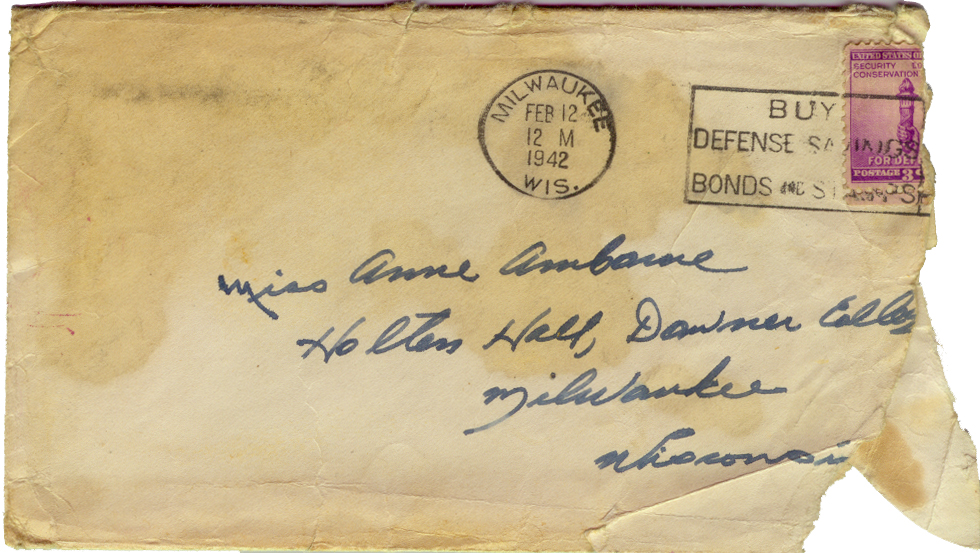 MILWAUKEE
FEB 12
12 M
1942
WIS.
BUY
DEFENSE SAVINGS
BONDS AND STAMPS
UNITED STATES O
SECURITY
CONSERVATION
FOR DEF
POSTAGE 3
Miss Anne
Holton Hall, Downer Colle
Milwaukee
Wisconsi